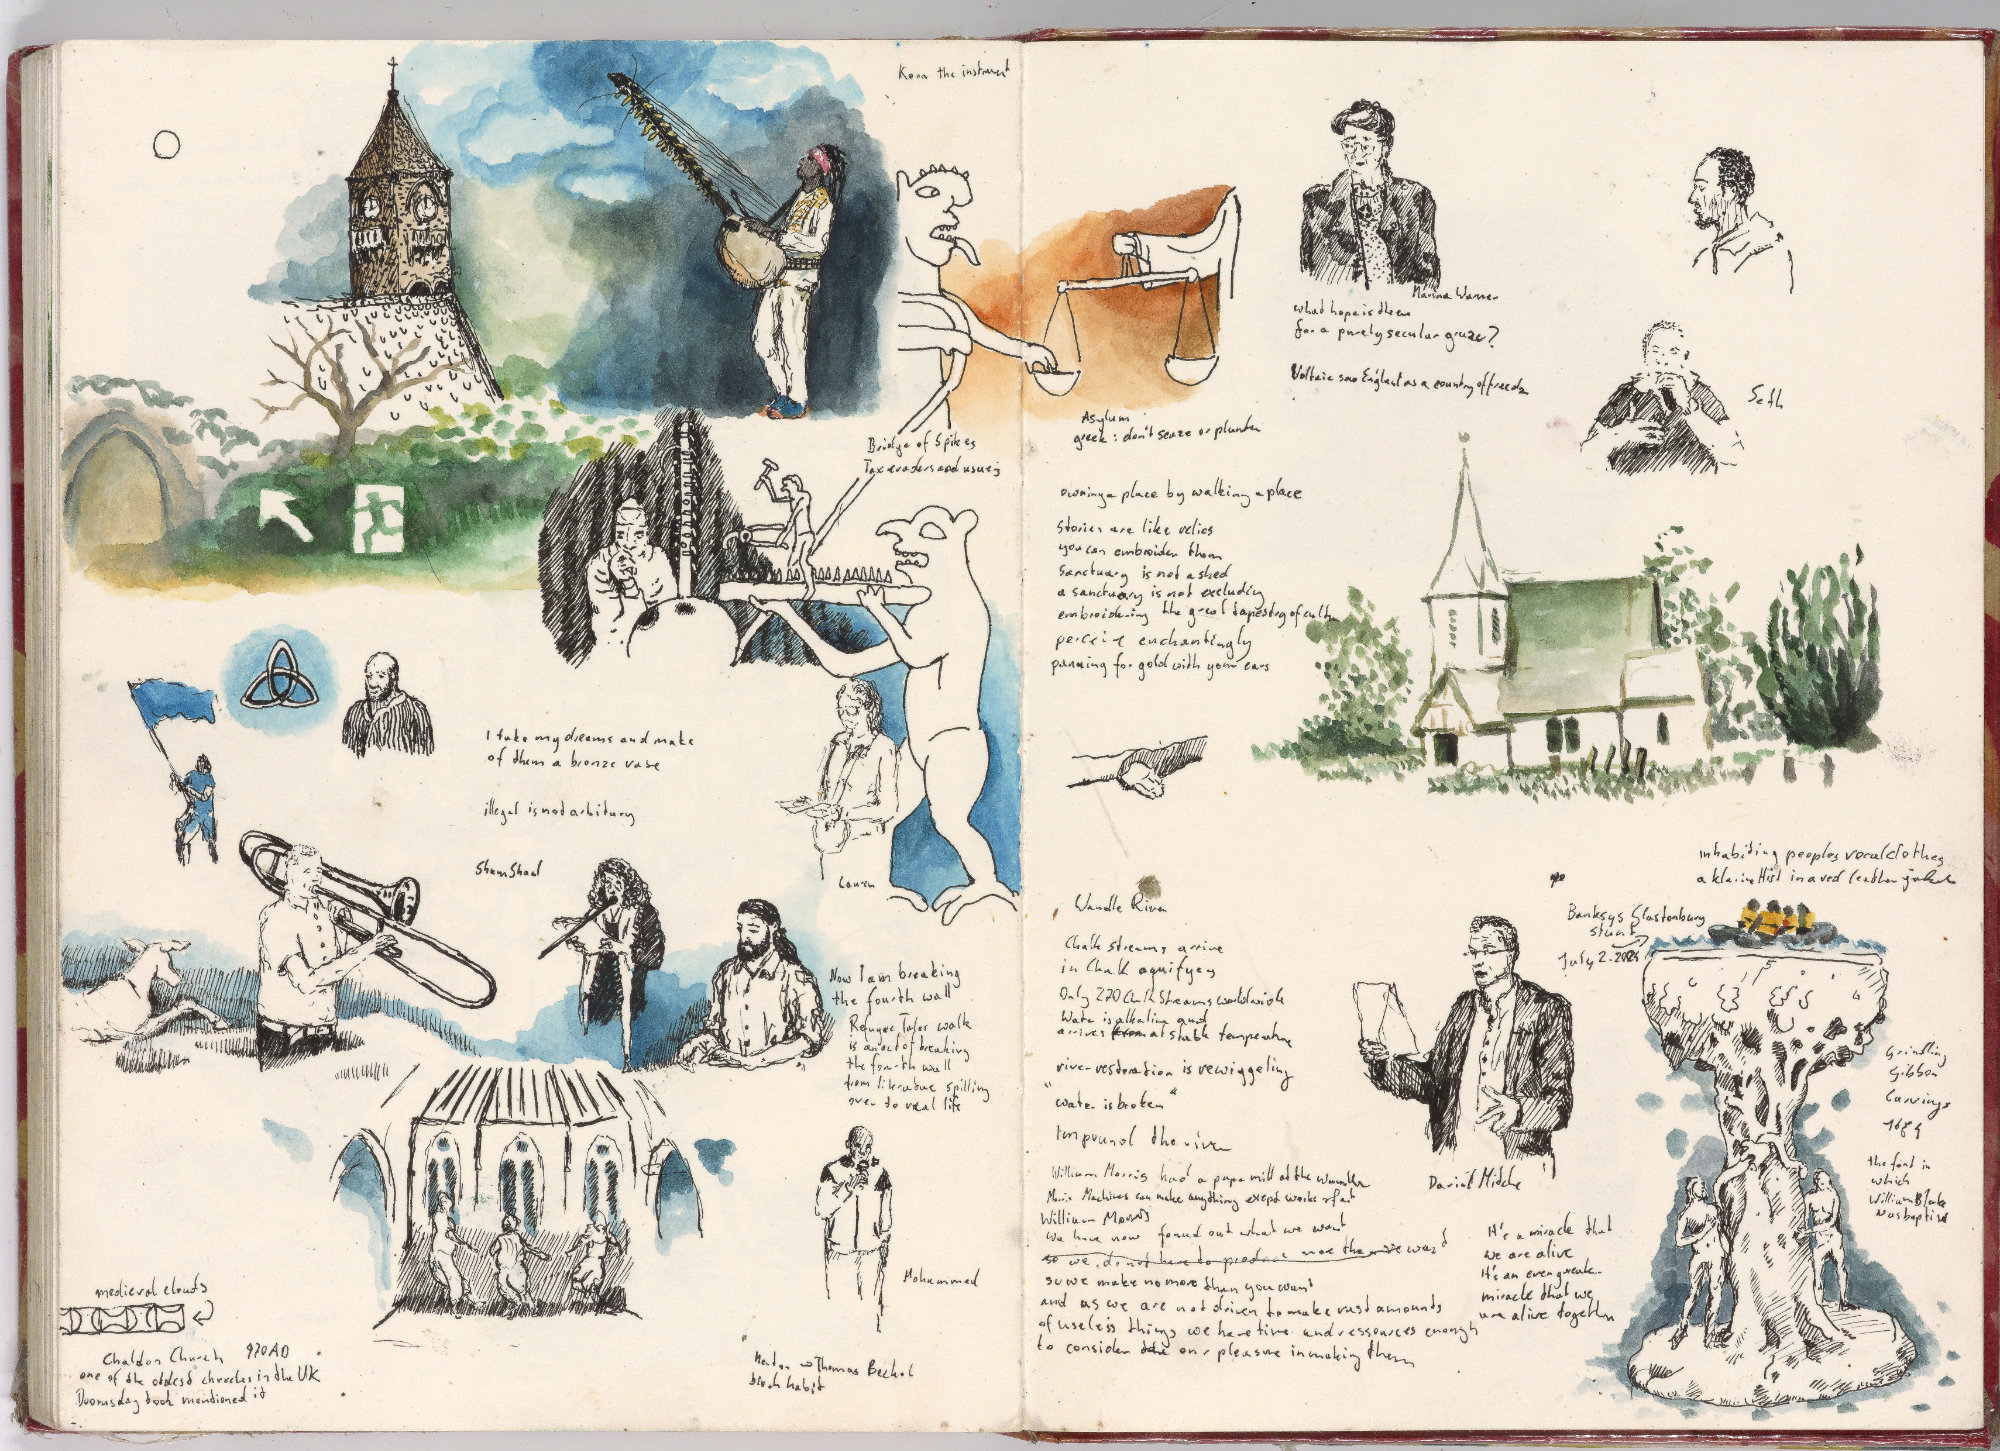 Kora the instrument
Bridge of Spikes
Tax evaders and usury
I take my dreams and make
of them a bronze vase
illegal is not arbitrary
ShamShad
Lauren
Now I am breaking
the fourth wall
Refugee Tales walk
is an act of breaking
the fourth wall
from literature spilling
over to real life
Mohammed
medieval clouds
Chaldon Church 970 AD
one of the oldest churches in the UK
Doomsday book mentioned it
Thomas Becket
habit
Marina Warner
what hope is there
for a purely secular
Voltaire saw England as a country of freedom
Seth
Asylum
greek : don't seaze or plunder
owning a place by walking a place
Stories are like relics
you can embroider them
Sanctuary is not a shed
a sanctuary is not excluding
embroidering the great tapestry of culture
perceive enchantingly
panning for gold with your ears
inhabiting peoples vocal clothes
a klarinettist in a red leather jacket
Wandle River
Chalk streams arrive
in Chalk aquifyers
Only 220 Chalk Streams worldwide
Water is alkaline and
arrives from at stable temperature
river restoration is rewiggeling
"water is broken"
impound the river
William Morris had a paper mill at the Wandle
Machines can make anything exept works of art
William Morris
We have now found out what we want
so we do not have to produce more than we want
so we make no more than you want
and as we are not driven to make vast amounts
of useless things we have time and ressources enough
to consider our pleasure in making them
David Mitche
It's a miracle that
we are alive
It's an even greater
miracle that we
are alive together
Banksys Glastonbury
stunt
July 2. 2024
Grindling
Gibbon
Carvings
the font in
which
William Blake
was baptised